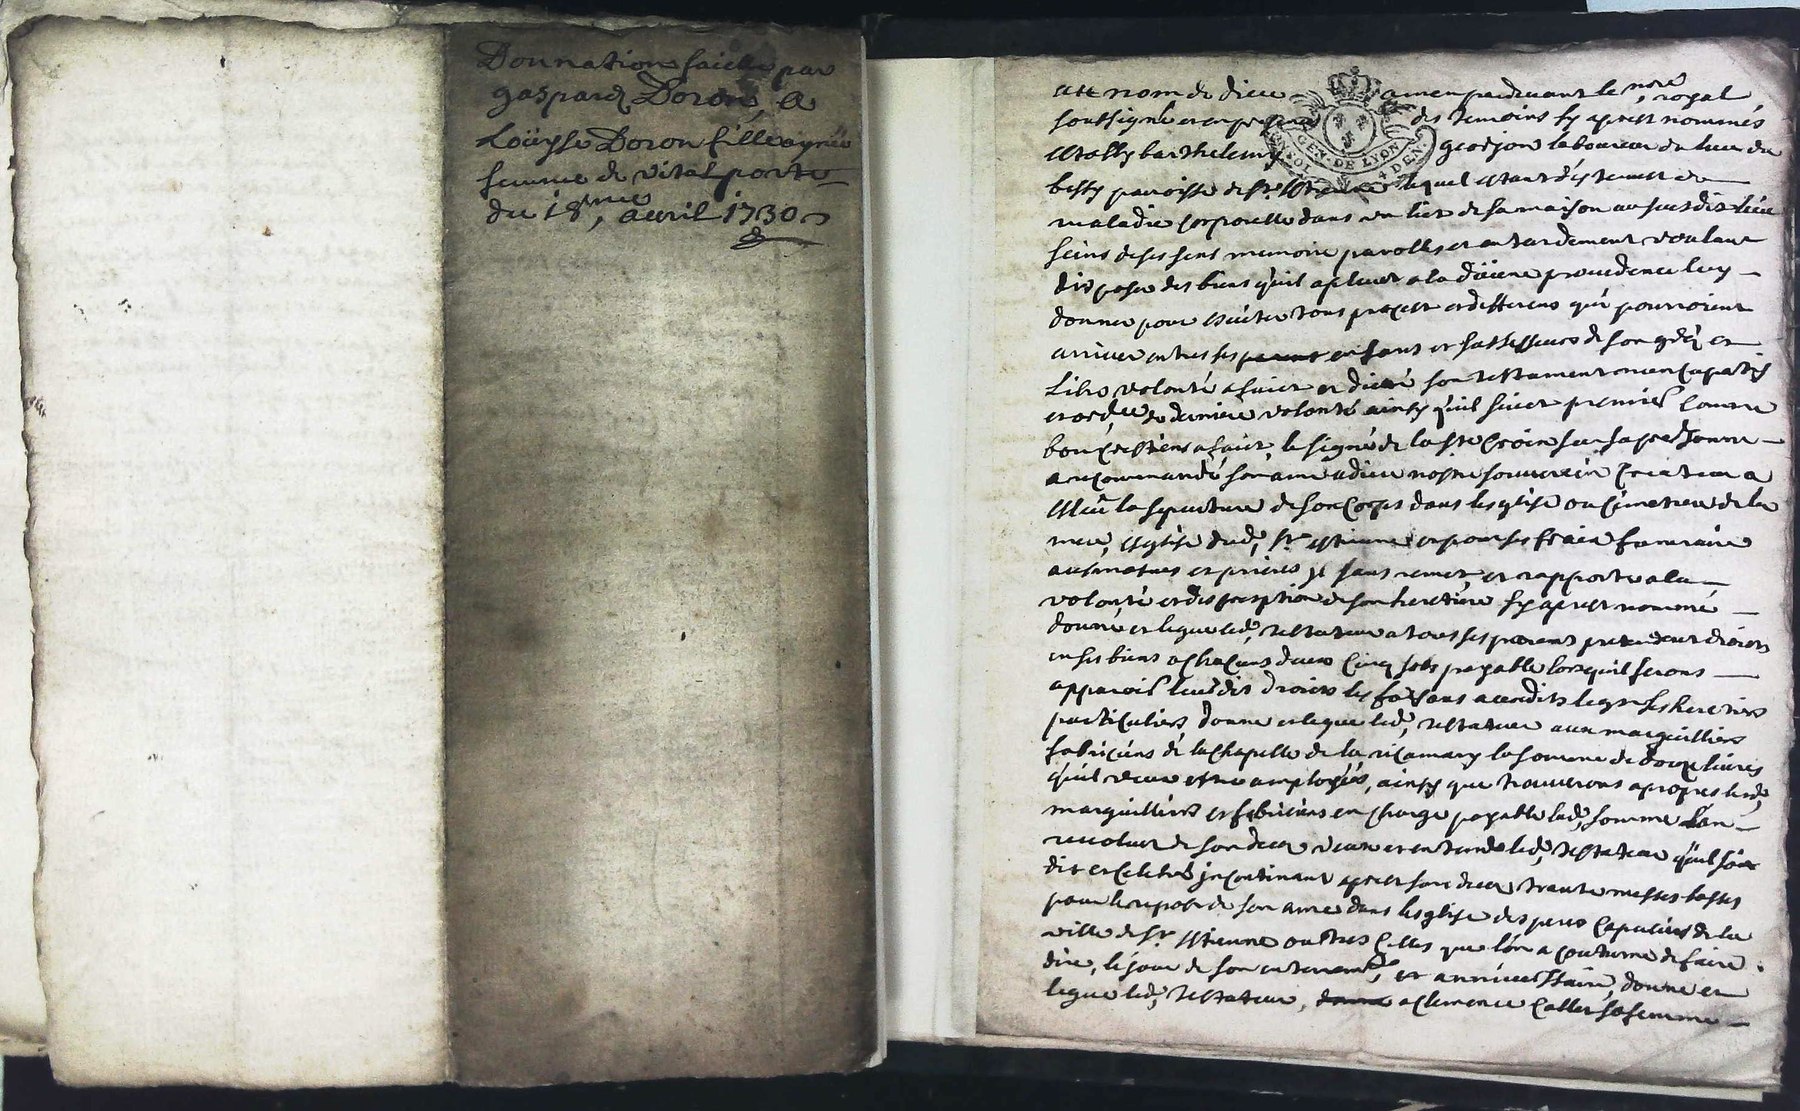 Donnation faicte par
gaspard Doron, a
Loüyse Doron fille aynée
femme de vital porte
du 18me, avril 1730
au nom de dieu amen pardevant le nore royal
soussigné et en presence des temoins sy apres nommés
estably barthelemy geodjon laboureur du lieu du
bessy paroisse de st estienne lequel estant detenu de
maladie corporelle dans un lict de sa maison au susdit lieu
seins de ses sens memoire parolle et entendement voulant
disposer des biens qu'il a pleut a la divine providence luy
donner pour esviter tous procest et differens qui pourroient
arriver entre ses enfans et successeurs de son gré et
libre volonté a faict et dicté son testament noncupatif
et ordre de derniere volonté ainsy qu'il suict premier comme
bon crestiens a faict, le signe de la ste croix sur sa personne
a recommandé son ame a dieu nostre souverain createur a
esleu la sepulture de son corps dans lesglise ou cimetiere de la
mere, esglise dud, st estienne et pour ses frais funeraire
aumosnes et prieres il s'ans remet et rapporte a la
volonté et discreption de son heretiere sy apres nommé
donne et legue led, testateur a tous ses parens pretendant droicts
en ses biens a chacuns deux cinq sols payable lorsqu'il feront
apparoir leurdit droicts les faisans avecdits legs ses heretiers
particuliers, donne et legue led, testateur aux marguilliers
fabriciens de la chapelle de la ricamary la somme de douze livres
qu'il veux estre employés, ainsy que trouverons a propos lesd,
marguilliers et fabriciens en charge payable lad, somme l'an
revolut de son deces veux et entends led, testateur qu'il soit
dit et celebré jncontinant apres son deces trante messes basses
pour le repos de son ame dans lesglise des peres capucins de la
ville de st estienne outres celles que l'on a coutume de faire
dire, le jour de son enterremt, et anniverssaire, donne et
legue led, testateur, a clemence caller sa femme
GEN. DE LYON